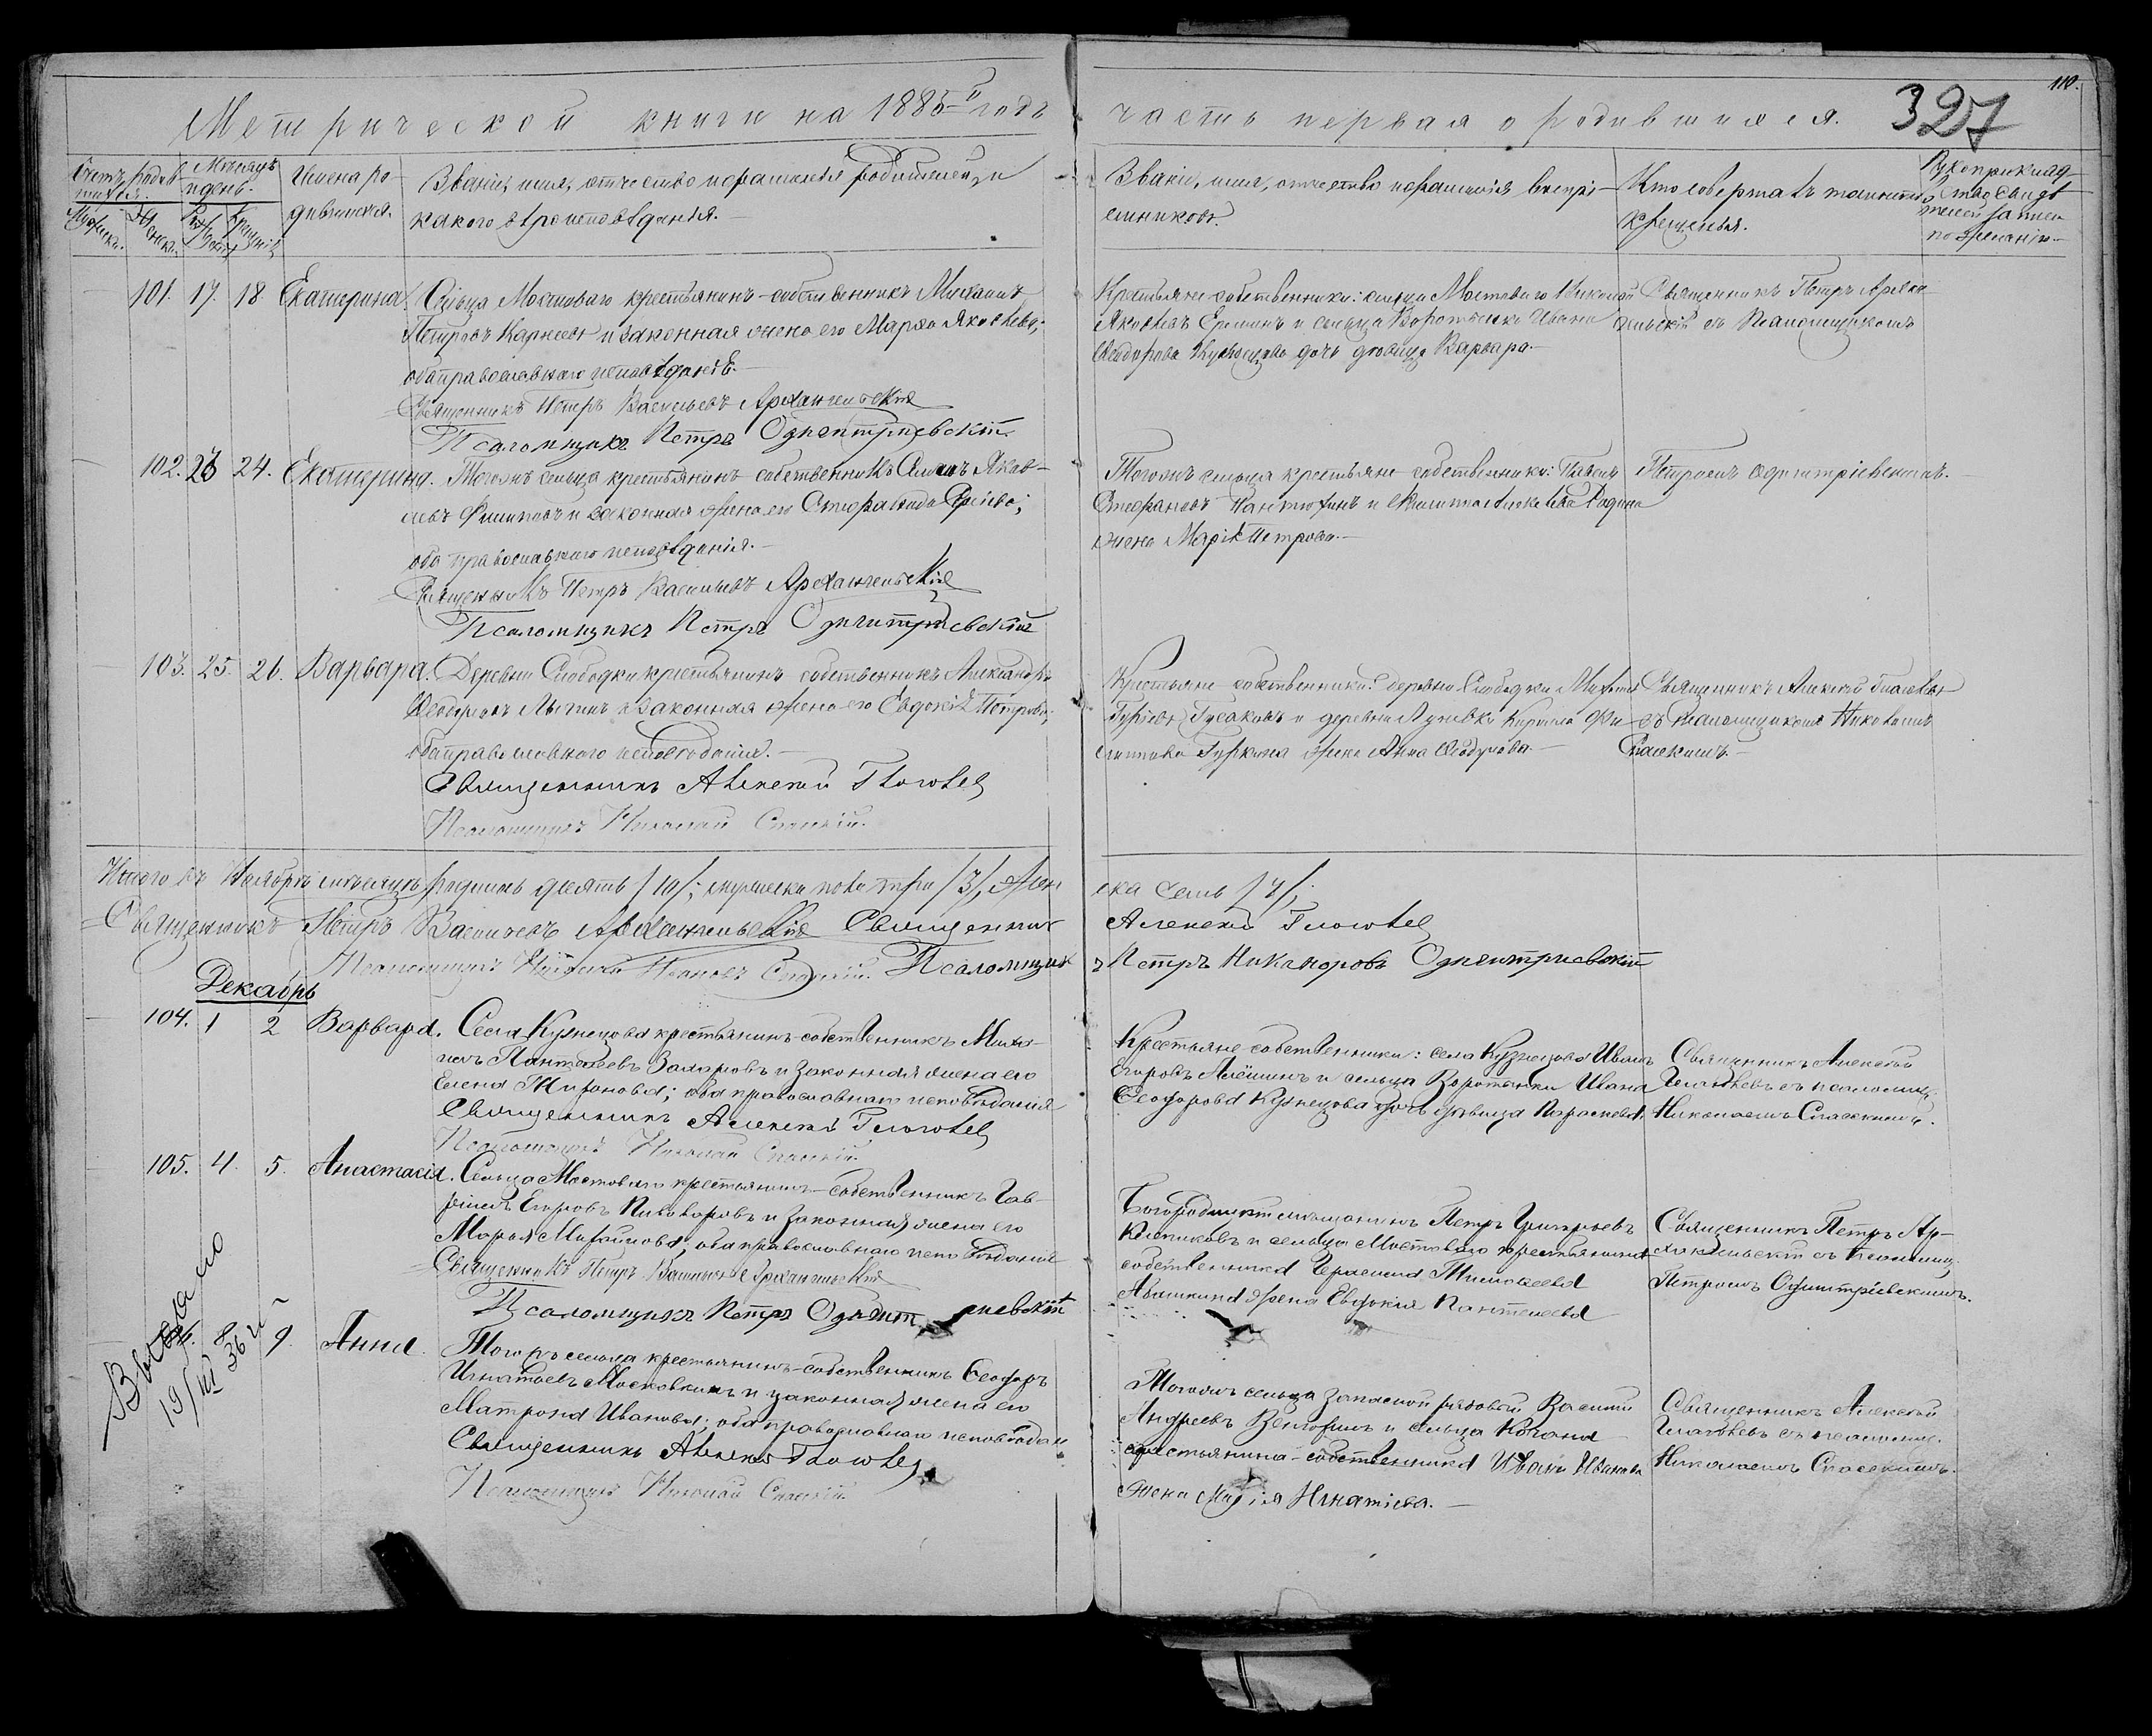 110.
327
Метрической книги на 1885й годъ часть первая о родившихся.
Счетъ родив-
шихся.
Мужеск.
Женск.
Месяцъ
и день.
Рожденія
Крещенія
Имена ро-
дившихся.
Званіе, имя, отчество и фамилія родителей, и
какого вѣроисповѣданія.
Званіе, имя, отчество и фамилія воспрі-
емниковъ.
Кто совершалъ таинство
крещенія.
Рукоприклад-
ство свидѣ
телей записи
по желанію
101. 17. 18. Екатерина. Сельца Мостоваго крестьянинъ-собственникъ Михаилъ
Петровъ Карнеевъ и законная жена его Марѳа Яковлева;
оба православнаго исповѣданія.
Священникъ Петръ Васильевъ Архангельскій
Псаломщикъ Петръ Одигитріевскій
Крестьяне собственники: сельца Мостоваго Николай
Яковлевъ Ереминъ и сельца Воротынки Ивана
Ѳеодорова Кузнецова дочь девица Варвара.
Священникъ Петръ Архан
гельскій съ Псаломщикомъ
102. 23 24. Екатерина. Тогожъ сельца крестьянинъ собственникъ Яков-
левъ Филиповъ и законная жена его Стефанида;
оба православнаго исповѣданія.
Священникъ Петръ Васильевъ Архангельскій
Псаломщикъ Петръ Одигитріевскій
Тогожъ сельца крестьяне собственники: Павелъ
Стефановъ Пантюхинъ и Родина
жена Марія Петрова.
Петромъ Одигитріевскимъ.
103. 25. 26. Варвара. Деревни Слободки крестьянинъ собственникъ Александръ
Ѳеодоровъ и законная жена его Евдокія Петрова;
оба православнаго исповѣданія.
Священникъ Алексѣй Глаголевъ
Псаломщикъ Николай Спасскій.
Крестьяне собственники: деревни Слободки
Гусаковъ и деревни Кирилла Фи
липова жена Анна Ѳеодорова.
Священникъ Алексѣй Глаголевъ
съ псаломщикомъ Николаемъ
Спасскимъ.
Итого въ Ноябрѣ мѣсяцѣ родилось десять /10/; мужеска пола три /3/, жен
ска семь /7/;
Священникъ Петръ Васильевъ Архангельскій Священникъ
Алексѣй Глаголевъ
Псаломщикъ Николай Ивановъ Спасскій. Псаломщик
ъ Петръ Никаноровъ Одигитріевскій
Декабрь
104. 1 2 Варвара. Села Кузнецова крестьянинъ-собственникъ Миха-
илъ Пантелѣевъ Захаровъ и законная жена его
Елена; оба православнаго исповѣданія
Священникъ Алексѣй Глаголевъ
Псаломщикъ Николай Спасскій.
Крестьяне собственники: села Кузнецова Иванъ
Егоровъ Алёшинъ и сельца Воротынки Ивана
Ѳеодорова Кузнецова дочь девица Параскева.
Священникъ Алексѣй
Глаголевъ съ псаломщ.
Николаемъ Спасскимъ.
105. 4. 5. Анастасія. Сельца Мостоваго крестьянинъ-собственникъ Гав-
ріилъ Егоровъ Пивоваровъ и законная жена его
Марія Михайлова; оба православнаго исповѣданія
Священникъ Петръ Васильевъ Архангельскій
Псаломщикъ Петръ Одигитріевскій
Петръ Григорьевъ
Клепиковъ и сельца Мостоваго крестьянина
собственника Герасима Тимоѳеева
Авашкина жена Евдокія Пантелеева
Священникъ Петръ Ар-
хангельскій съ псаломщ.
Петромъ Одигитріевскимъ.
Выдано
19/VII 36 г
8 9. Анна. Тогожъ сельца крестьянинъ-собственникъ Ѳеодоръ
Игнатьевъ Московкинъ и законная жена его
Матрона Иванова; оба православнаго исповѣдан
Священникъ Алексѣй Глаголевъ
Псаломщикъ Николай Спасскій.
Тогожъ сельца запасной рядовой Василій
Андреевъ и сельца
крестьянина-собственника Ивана Иванова
жена Марія Игнатіева.
Священникъ Алексѣй
Глаголевъ съ псаломщ.
Николаемъ Спасскимъ.